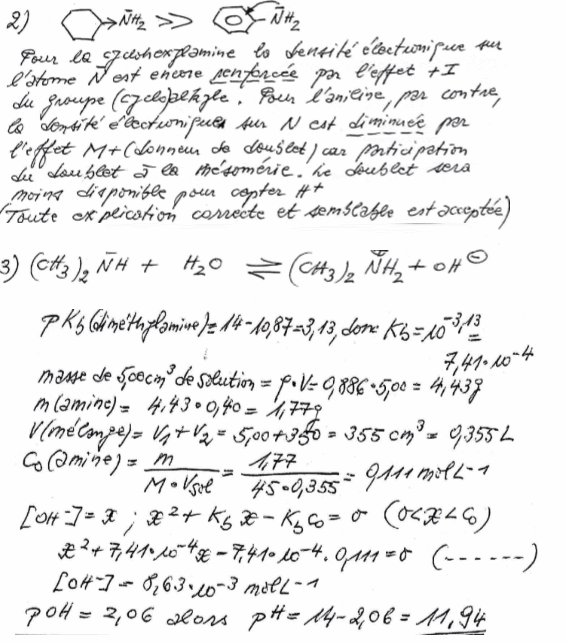 2) →N̄H₂ >> N̄H₂
Pour la cyclohexylamine la densité électronique sur
l'atome N est encore renforcée par l'effet +I
du groupe (cyclo)alkyle. Pour l'aniline, par contre,
la densité électronique sur N est diminuée par
l'effet M+ (donneur de doublet) car participation
du doublet à la mésomérie. Le doublet sera
moins disponible pour capter H⁺
(Toute explication correcte et semblable est acceptée)
3) (CH₃)₂ N̄H + H₂O ⇌ (CH₃)₂ NH₂ + OH⊖
pKb (diméthylamine) = 14-10,87 = 3,13, donc Kb = 10⁻³,¹³ =
7,41·10⁻⁴
masse de 5,00 cm³ de solution = ρ·V = 0,886·5,00 = 4,43g
m(amine) = 4,43·0,40 = 1,77g
V(mélange) = V₁ + V₂ = 5,00 + 350 = 355 cm³ = 0,355 L
C₀(amine) = m / M·Vsol = 1,77 / 45·0,355 = 0,111 mol L⁻¹
[OH⁻] = x ; x² + Kb x - Kb C₀ = 0 (0<x<C₀)
x² + 7,41·10⁻⁴x - 7,41·10⁻⁴·0,111 = 0 (------)
[OH⁻] = 8,63·10⁻³ mol L⁻¹
pOH = 2,06 alors pH = 14-2,06 = 11,94